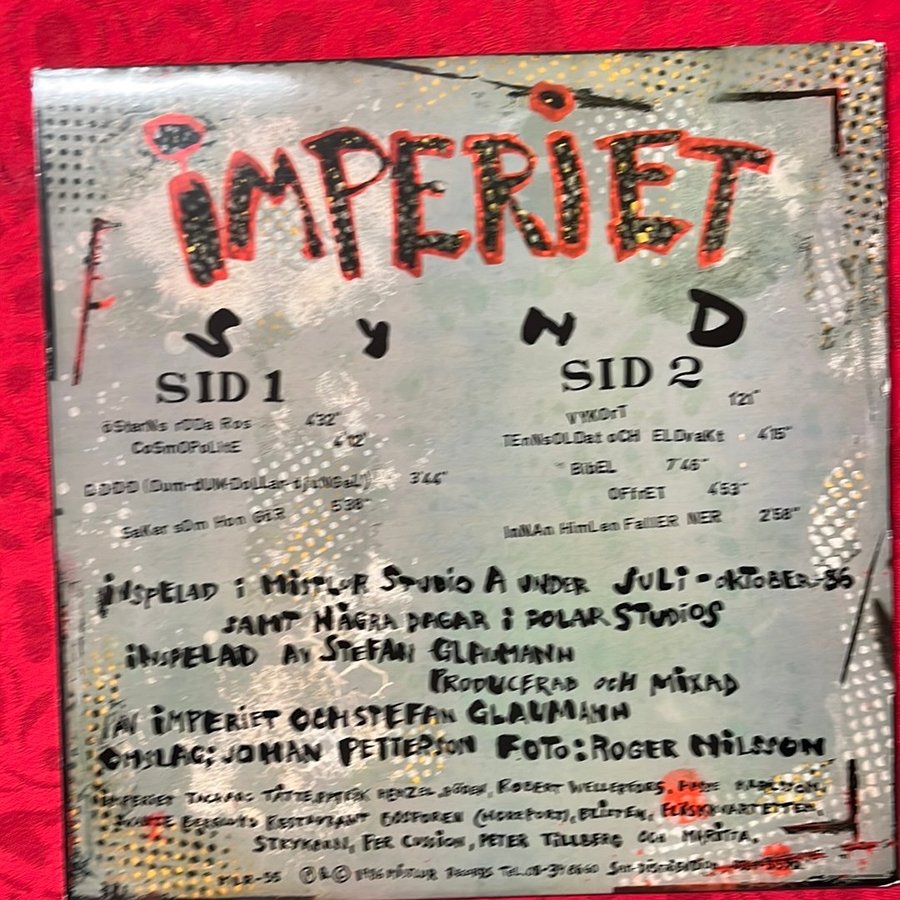 iMPERiET
SYND
SID 1
öStarNs rÖDa Ros 4'32"
CoSmOPoLitE 4'12"
DDDD (Dum-dUM-DoLLar-djuNGeL!) 3'44"
SaKer sOm Hon GER 5'38"
SID 2
VYKOrT 1'21"
TEnNsOLDat oCH ELDvaKt 4'15"
BibEL 7'46"
OFfrET 4'53"
InNAn HimLen FallER NER 2'58"
iNSPELAD i MiSTLUR STUDiO A UNDER JULi - OKTOBER -86
SAMT NÅGRA DAGAR i POLAR STUDiOS
iNSPELAD AV STEFAN GLAUMANN
PRODUCERAD OCH MiXAD
AV iMPERiET OCH STEFAN GLAUMANN
OMSLAG; JOHAN PETTERSON FOTO: ROGER NiLSSON
iMPERiET TACKAR: TÅTTE, HENZEL, ROBERT WELLERFORS,
RESTAURANT BOSFOREN BLÅSTEN, ELÄSKKVARTETTEN,
STRYKARN, PER CUSSION, PETER TILLBERG OCH MARITTA.
MLR-55 Ⓟ & © 1986 MiSTLUR RECORDS TEL. 08-